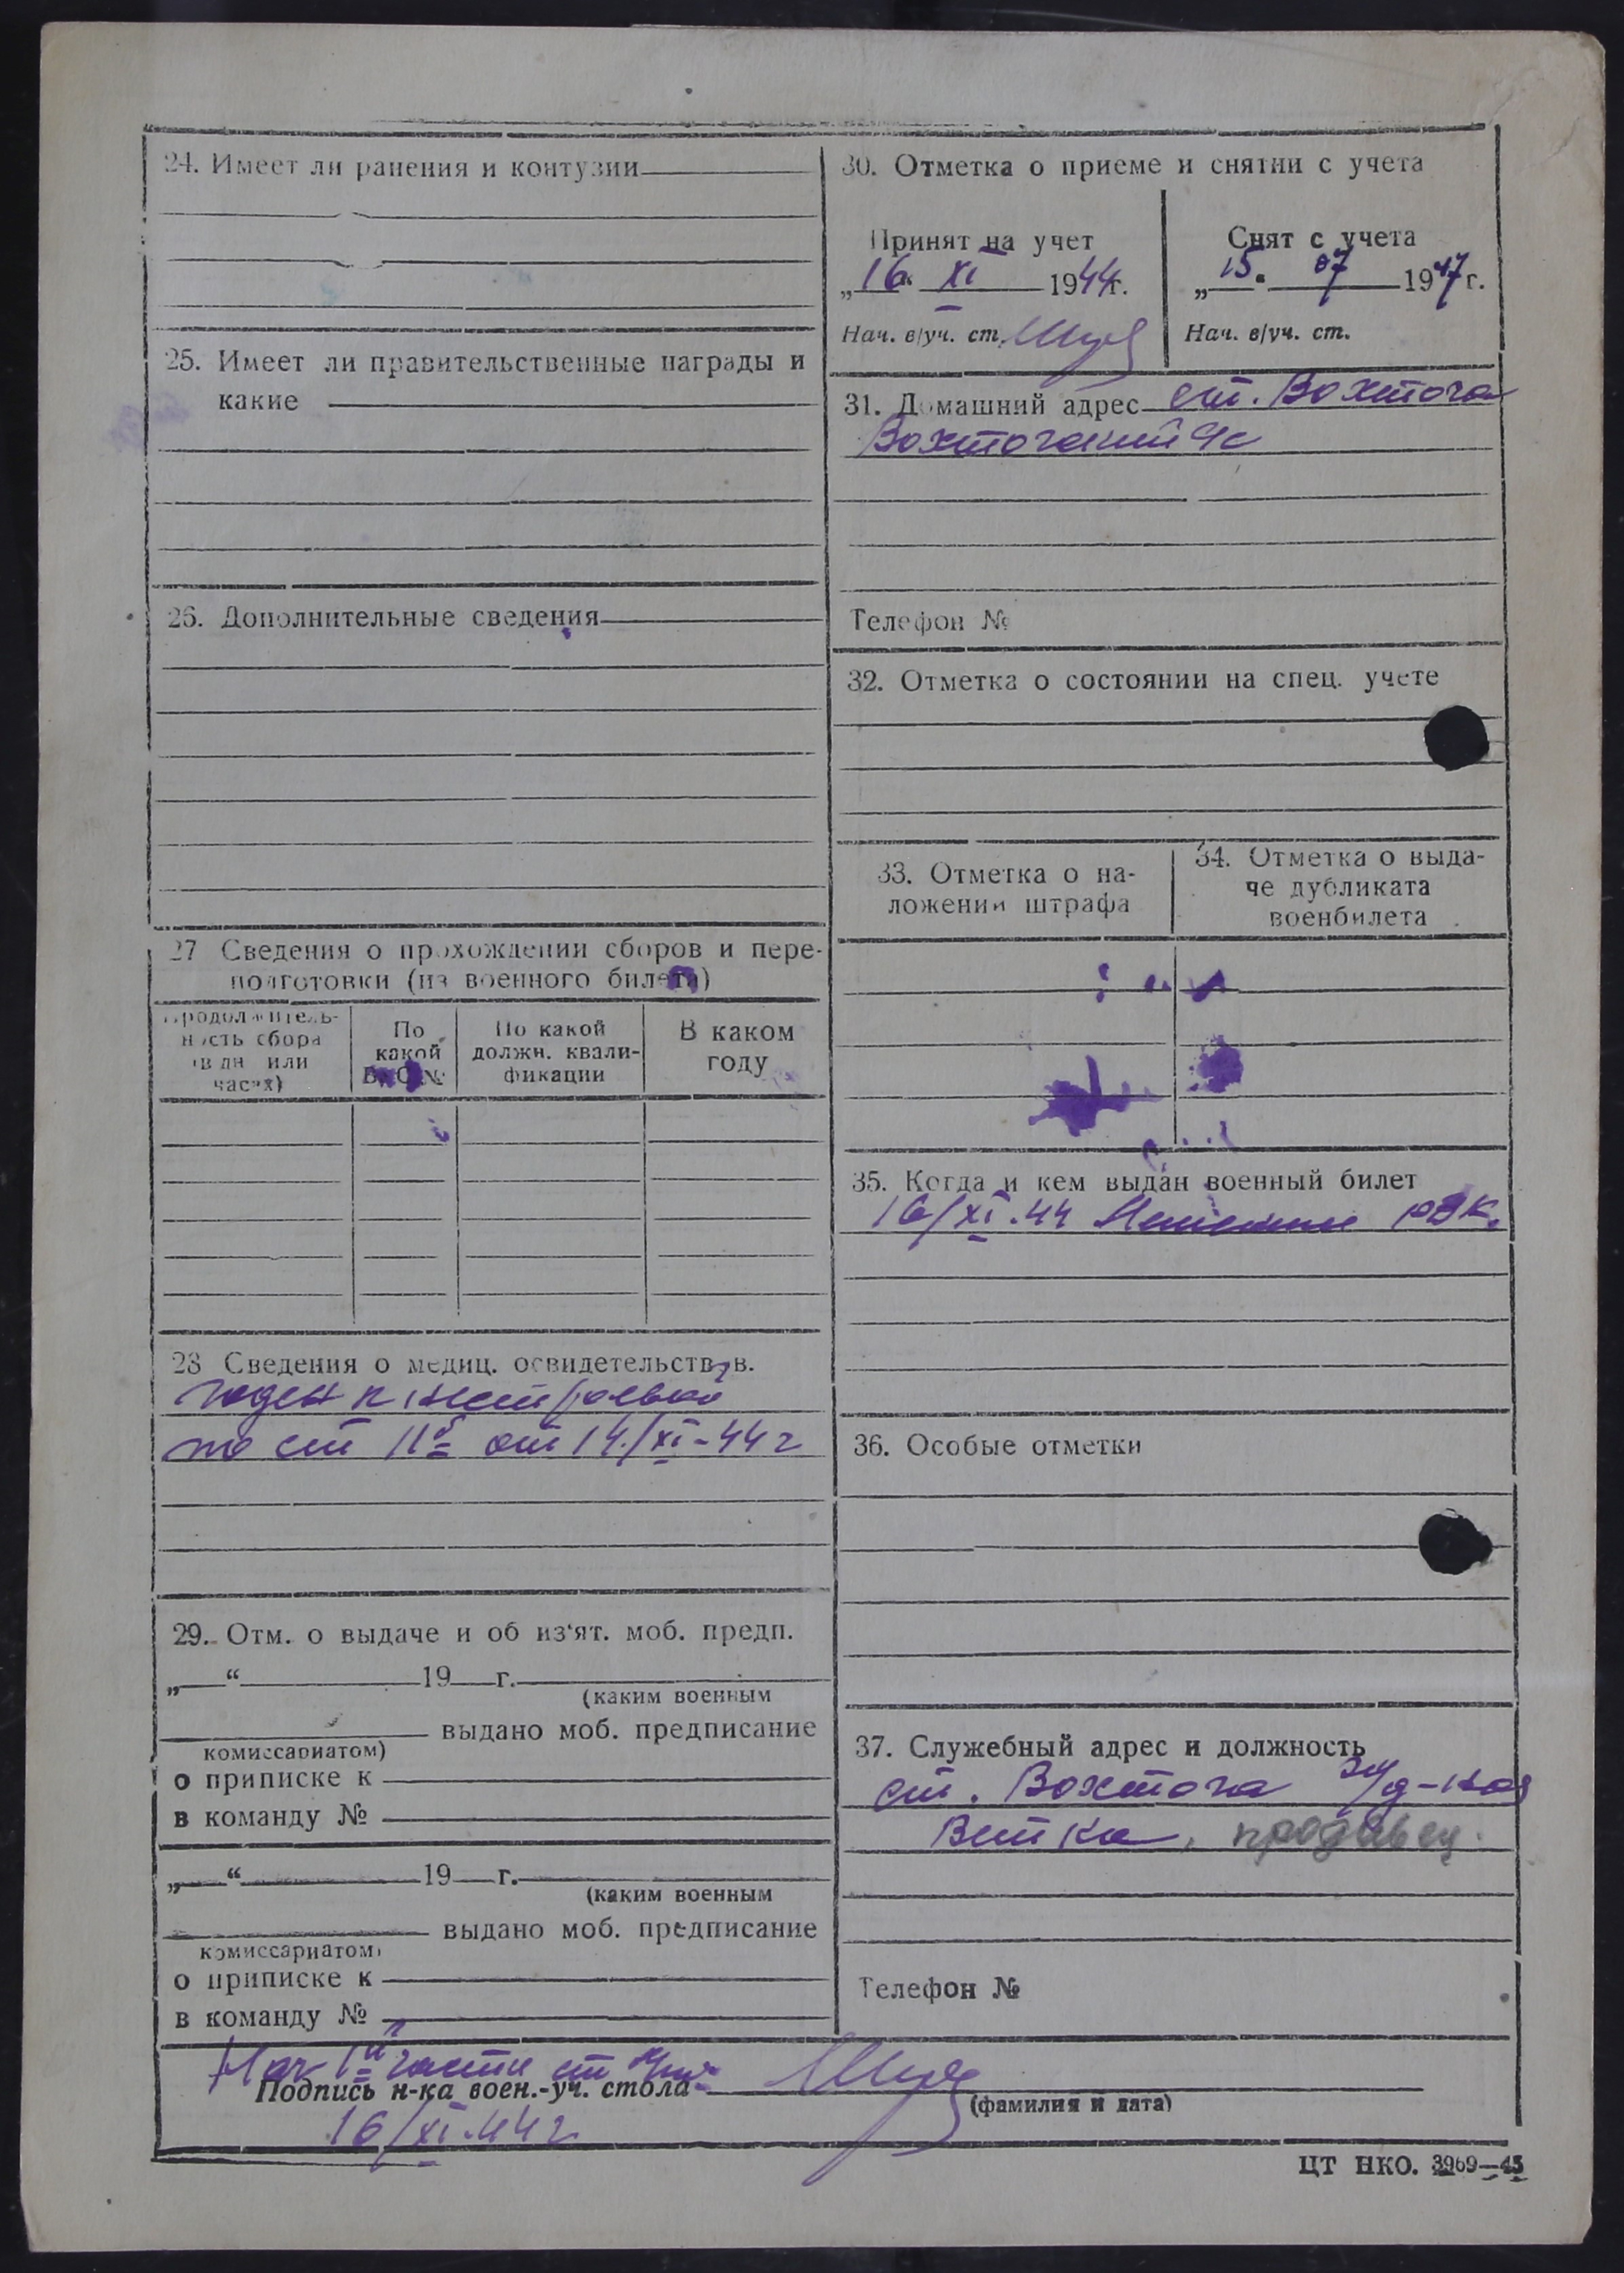 24. Имеет ли ранения и контузии
25. Имеет ли правительственные награды и
какие
26. Дополнительные сведения
27 Сведения о прохождении сборов и пере-
подготовки (из военного билета)
Продолжитель-
ность сбора
(в дн или
часах)
По
какой
ВУС №
По какой
должн. квали-
фикации
В каком
году
28 Сведения о медиц. освидетельствов.
годен к нестроевой
по ст от 14/XI-44 г
29. Отм. о выдаче и об из'ят. моб. предп.
„ “ 19 г.
(каким военным
выдано моб. предписание
комиссариатом)
о приписке к
в команду №
„ “ 19 г.
(каким военным
выдано моб. предписание
комиссариатом)
о приписке к
в команду №
30. Отметка о приеме и снятии с учета
Принят на учет
„16“ XI 1944г.
Нач. в/уч. ст.
Снят с учета
„15“ 07 1947г.
Нач. в/уч. ст.
31. Домашний адрес ст. Вохтога
Вохтогский
Телефон №
32. Отметка о состоянии на спец. учете
33. Отметка о на-
ложении штрафа
34. Отметка о выда-
че дубликата
военбилета
35. Когда и кем выдан военный билет
16/XI.44 РВК.
36. Особые отметки
37. Служебный адрес и должность
ст. Вохтога
Ветка, продавец.
Телефон №
Нач части
Подпись н-ка воен.-уч. стола
(фамилия и дата)
16/XI.44 г
ЦТ НКО. 3969—45